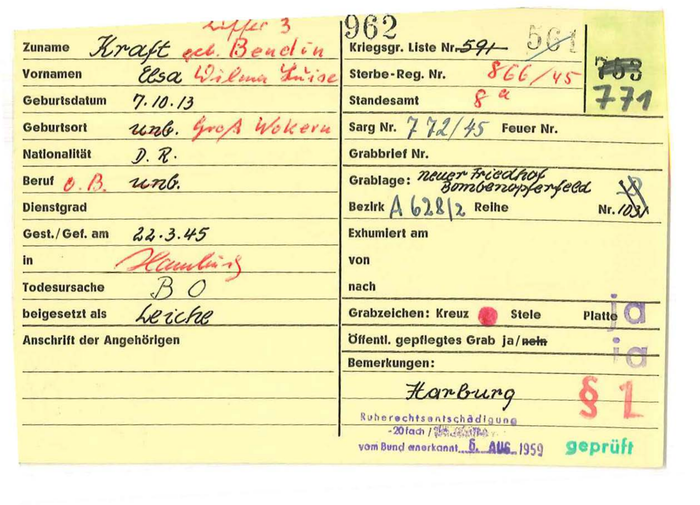 Ziffer 3
Zuname Kraft geb. Bendin
Vornamen Elsa Wilma Luise
Geburtsdatum 7.10.13
Geburtsort unb. Groß Wokern
Nationalität D. R.
Beruf o. B. unb.
Dienstgrad
Gest./Gef. am 22.3.45
in Hamburg
Todesursache B O
beigesetzt als Leiche
Anschrift der Angehörigen
962
Kriegsgr. Liste Nr. 591 561
Sterbe-Reg. Nr. 866/45
Standesamt 8a
753
771
Sarg Nr. 772/45 Feuer Nr.
Grabbrief Nr.
Grablage: neuer Friedhof
Bombenopferfeld
Bezirk A 628/2 Reihe Nr. 1031
Exhumiert am
von
nach
Grabzeichen: Kreuz Stele Platte ja
Öffentl. gepflegtes Grab ja/nein ja
Bemerkungen:
Harburg
§ 1
Ruherechtsentschädigung
-20fach /
vom Bund anerkannt 6. AUG. 1959
geprüft